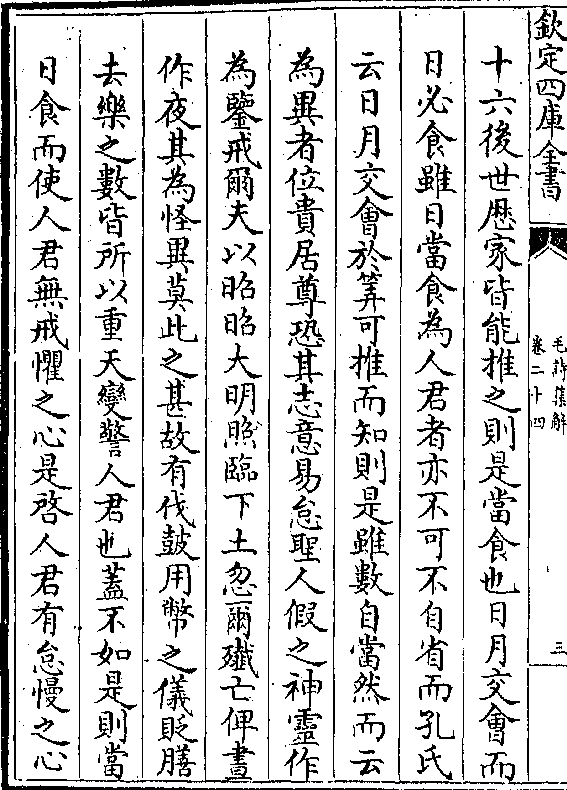 欽定四庫全書
毛詩集解
卷二十四
三
十六後世歴家皆能推之則是當食也日月交會而
日必食雖日當食為人君者亦不可不自省而孔氏
云日月交會於筭可推而知則是雖數自當然而云
為異者位貴居尊恐其志意易怠聖人假之神靈作
為鑒戒爾夫以昭昭大明照臨下土忽爾殲亡俾晝
作夜其為怪異莫此之甚故有伐鼓用幣之儀貶膳
去樂之數皆所以重天變警人君也葢不如是則當
日食而使人君無戒懼之心是啓人君有怠慢之心